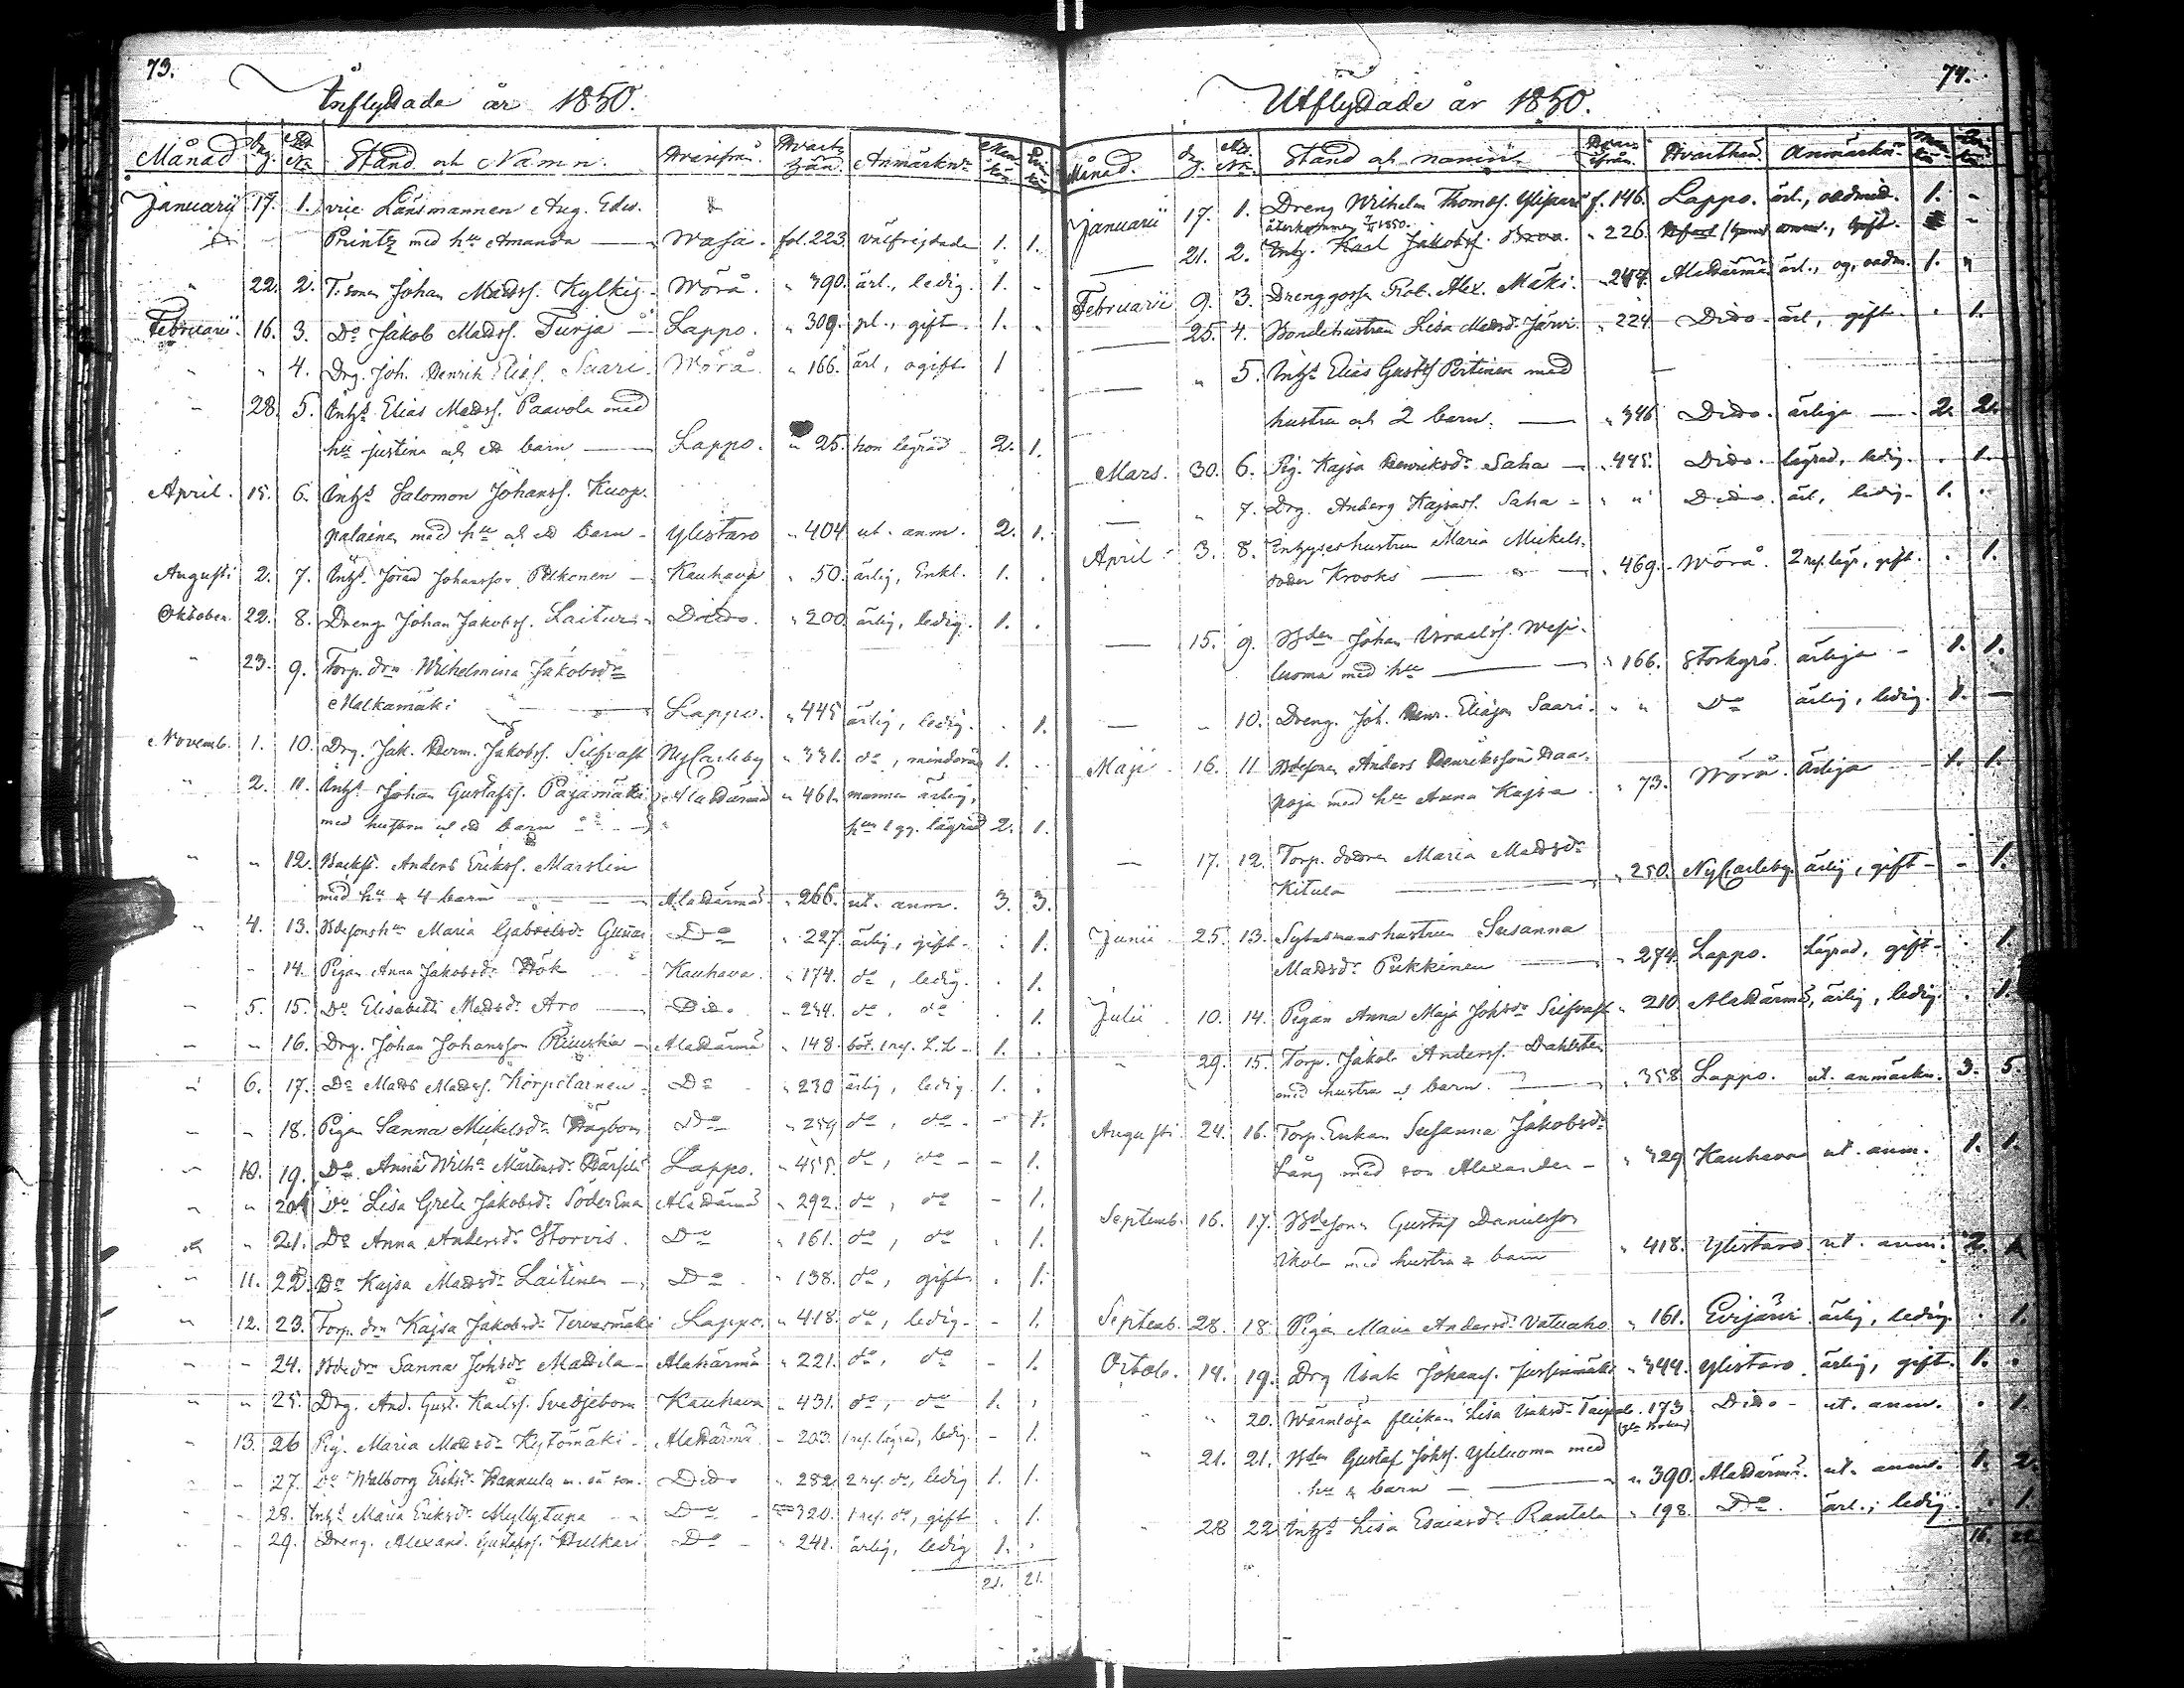 73.
Inflyttade år 1850.
Månad Dag. Att. No Stånd och Namn. Hvarifrån. Hvart hän. Anmärkn. Mankön Qvinkön
Januarii 17. 1. vice Länsmannen Aug. Edw.
Printz med hu Amanda — Wasa. fol. 223. välfrejdade 1. 1.
" 22. 2. T. sonen Johan Matss. Kylkig Wörå. " 390. ärl., ledig. 1. -
Februarii. 16. 3. Do Jakob Matss. Turja — Lappo. " 309. gift. 1. .
" " 4. Drg. Joh. Henrik Eliass. Saari Wörå " 166. ärl., ogift 1
" 28. 5. Inhs Elias Matss. Paavola med
hu Justina och ett barn — Lappo. " 25. hon lägrad 2. 1.
April. 15. 6. Inhs Salomon Johanss. Kuop-
palainen med hu och ett barn - Ylistaro " 404 ut. anm. 2. 1.
Augusti 2. 7. Inhs. Johansson Pelkonen — Kauhava " 50. ärlig, Enkl. 1. .
Oktober. 22. 8. Dreng Johan Jakobss. Laituri - Ditto. " 200. ärlig, ledig. 1. .
" 23. 9. Torp. dr Wilhelmina Jakobsdr
Matkamäki — Lappo. " 445 ärlig, ledig. . 1.
Novemb. 1. 10. Drg. Jak. Herm. Jakobss. Silfvast NyCarleby " 331. do, minderårig 1. .
" 2. 11. Inhs Johan Gustafss. Pajamäki Alahärmä " 461. mannen ärlig,
med hustru och ett barn hu 1 gg. lägrad 2. 1.
" " 12. Backst. Anders Erikss. Marslin
med hu & 4 barn — Alahärmä " 266. ut. anm. 3. 3.
" 4. 13. Bdesons hu Maria Gabrielsdr Do " 227. ärlig, gift - . 1.
- 14. Pigan Anna Jakobsdr Hök Kauhava. " 174. do, ledig. . 1.
- 5. 15. Do Elisabeth Matsdr Aro — Ditto " 234. do, do . 1.
- " 16. Drg. Johan Johansson Alahärmä " 148. böt. 1 res. L.L - 1. .
" 6. 17. Do Matts Matss. Korpelainen - Do " 230 ärlig, ledig. 1. .
- - 18. Pigan Sanna Mickelsdr Hägbom Do " 259 do, do. - 1.
- 10. 19. Do. Anna Wilha Mårtensdr Lappo. " 455. do, do - - 1.
" " 20. Do Lisa Greta Jakobsdr Alahärmä " 292. do, do - 1.
" 21. Do Anna Andersdr Storvis. Do " 161. do, do . 1.
" 11. 22. Do Kajsa Matsdr Laitinen - Do " 138. do, gift. . 1.
" 12. 23. Torp. dr Kajsa Jakobsdr Tervasmäki Lappo. " 418. do, ledig. - 1.
- - 24. Bdedr Sanna Johsdr Mattila - Alahärmä " 221. do, do - 1.
" " 25. Drg. And. Gust. Karlss. Svedjeborn Kauhava " 431. do, do 1. .
" 13. 26 Pig. Maria Matsdr Kytömäki - Alahärmä " 203. 1 res. lägrad, ledig. - 1.
" - 27. Do Walborg Eriksdr Hannula m. så son. Ditto " 282. 2 res. do, ledig 1. 1.
- 28. Inhs Maria Eriksdr Myllytupa Do " 320. 1 res. do, gift . 1.
" " 29. Dreng. Alexand. Gustafss. Hulkari Do - " 241. ärlig, ledig 1. .
21. 21.
74.
Utflyttade år 1850.
Månad. Dag. Att. No. Stånd och namn. Hvarifrån. Hvarthän. Anmärkn. Mankön Qvinkön
Januarii 17. 1. Dreng Wilhelm Thomass. Ylipää f. 146. Lappo. ärl., 1. -
återkommen 1850.
— 21. 2. Inhs. Karl Jakobss. " 226. -
Februarii 9. 3. Drenggosse Alex. Mäki. " 247. Alahärmä ärl., 1. "
— 25. 4. Bondehustrun Lisa Matsdr Järvi " 224 Ditto. ärl., gift. . 1.
— " 5. Inhs Elias Gustss Pertinen med
hustru och 2 barn. — " 346 Ditto. ärliga — 2. 2.
Mars. 30. 6. Pig. Kajsa Henriksdr Saha — " 445. Ditto. lägrad, ledig. . 1.
— " 7. Drg. Anders Kajsass. Saha - " " Ditto. ärl., ledig. 1. .
April 3. 8. Inhyseshustrun Maria Mickels-
dotter Krooks — " 469. Wörå. 2 res. lägr., gift. . 1.
— 15. 9. Bden Johan Israelss. Wesi-
luoma med hu — " 166. Storkyro. ärliga - 1. 1.
— " 10. Dreng. Joh. Henr. Eliass. Saari. " " Do ärlig, ledig. 1. —
Maji 16. 11 Bdesonen Anders Henriksson Haa-
poja med hu Anna Kajsa . " 73. Wörå. ärliga - 1. 1.
— 17. 12. Torp. dottren Maria Matsdr
Kitula — " 250. NyCarleby. ärlig, gift - - 1.
Junii 25. 13. Sytningsmans hustrun Susanna
Matsdr Pukkinen — " 274 Lappo. Lägrad, gift. . 1.
Julii 10. 14. Pigan Anna Maja Johsdr Silfvast " 210 Alahärmä, ärlig, ledig. . 1.
" 29. 15. Torp. Jakob Anderss. Dahlsten
med hustru & barn. — " 358 Lappo. ut. anmärkn. 3. 5.
Augusti 24. 16. Torp. Enkan Susanna Jakobsdr
Lång med son Alexander - " 329 Kauhava ut. anm. 1. 1.
Septemb. 16. 17. Bdesonen Gustaf Danielsson
Ikola med hustru & barn " 418. Ylistaro ut. anm. 2. 1.
Septemb. 28. 18. Pigan Maria Andersdr Vatuaho " 161. Evijärvi. ärlig, ledig. . 1.
Octob. 14. 19. Drg Isak Johanss. Jussinmäki " 344. Ylistaro. ärlig, gift. 1. .
" " 20. Wärnlösa flickan Lisa Isaksdr Taipale. 173 Ditto - ut. anm. . 1.
" 21. 21. Bden Gustaf Johss. Yliluoma med
hu & barn — " 390. Alahärmä. ut. anm. 1. 2.
" 28 22 Inhs Lisa Esaiasdr Rantala " 198 Do. ärl., ledig. . 1.
16. 22